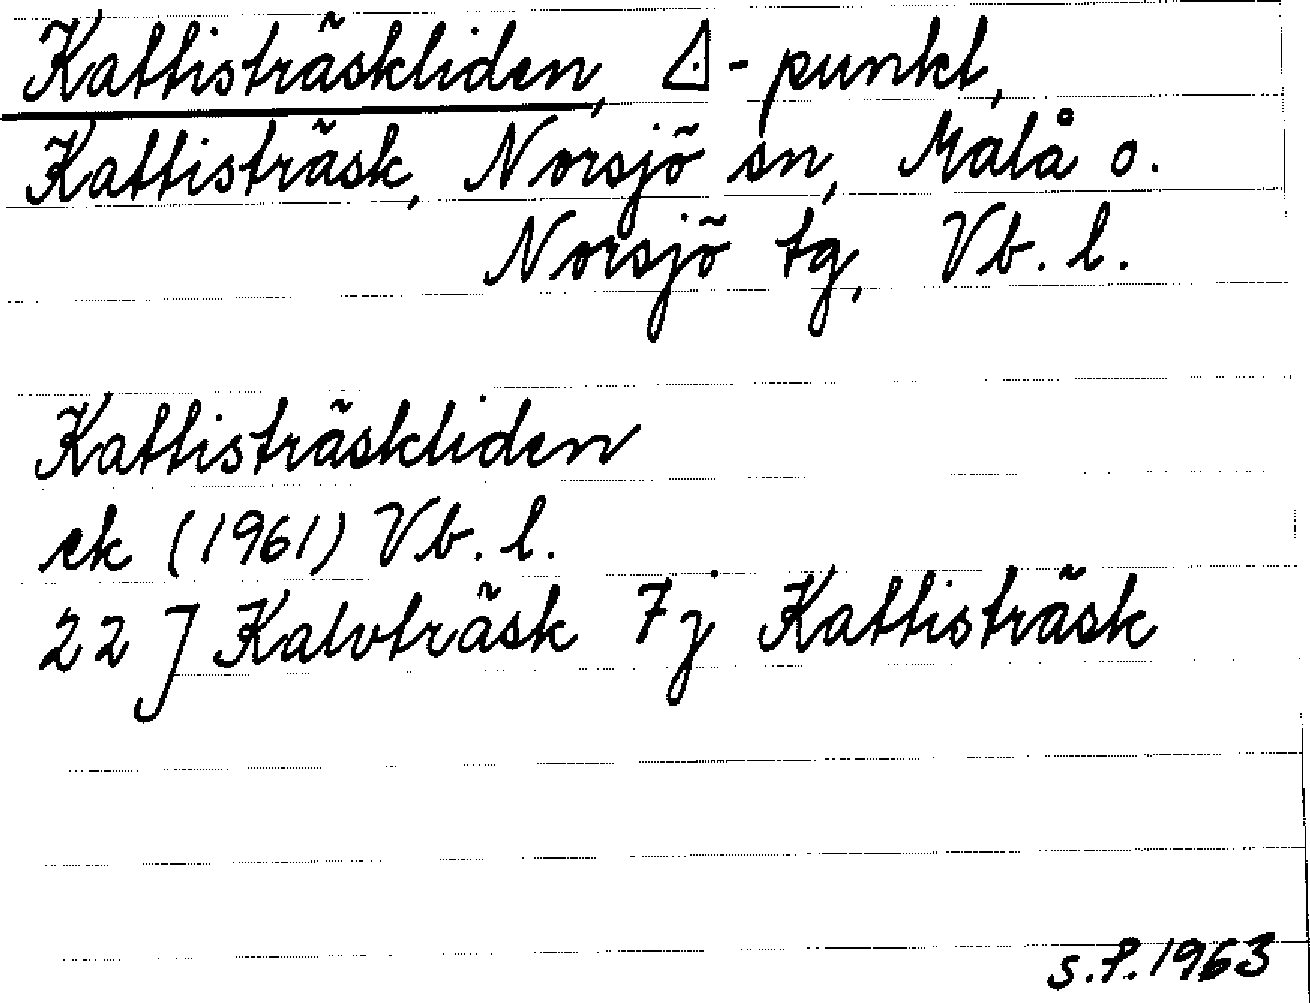 Kattisträskliden, ◬-punkt,
Kattisträsk, Norsjö sn, Malå o.
Norsjö tg, Vb. l.
Kattisträskliden
ek (1961) Vb. l.
22 J Kalvträsk 7j Kattisträsk
S.P. 1963